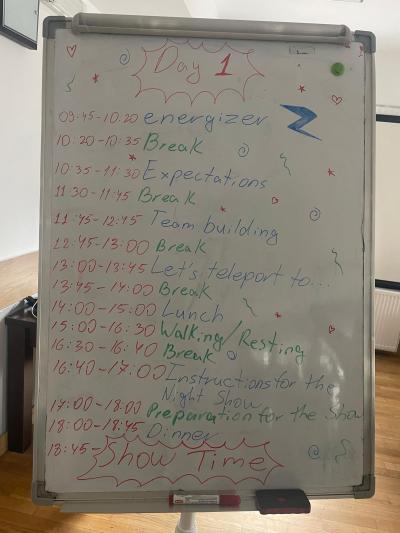 Day 1
09:45-10:20 energizer
10:20-10:35 Break
10:35-11:30 Expectations
11:30-11:45 Break
11:45-12:45 Team building
12:45-13:00 Break
13:00-13:45 Let's teleport to...
13:45-14:00 Break
14:00-15:00 Lunch
15:00-16:30 Walking/Resting
16:30-16:40 Break
16:40-17:00 Instructions for the
Night Show
17:00-18:00 Preparation for the Show
18:00-18:45 Dinner
18:45- Show Time